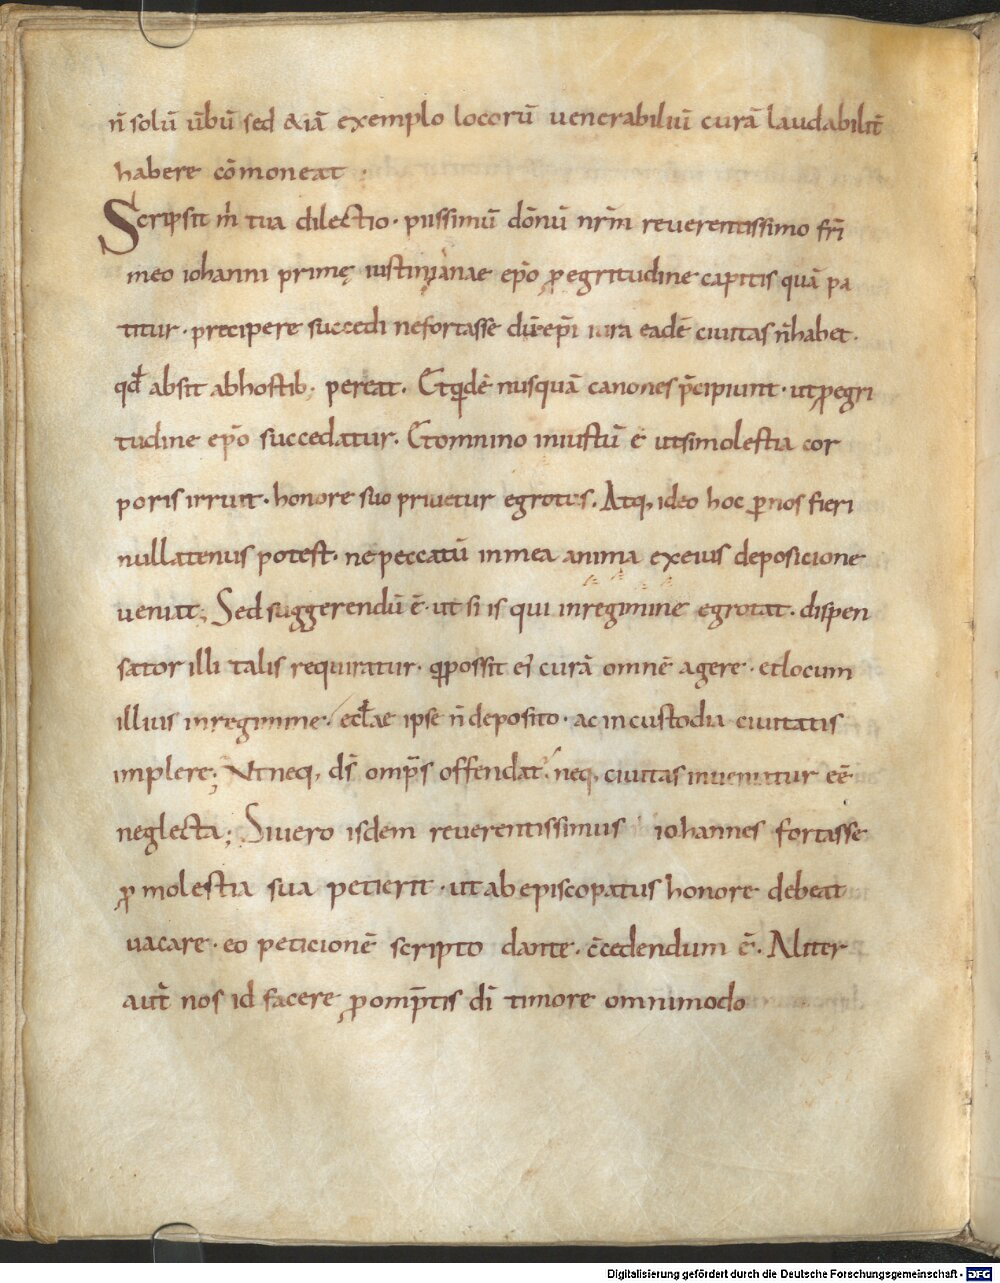 n̄ solū ūbū sed &iā exemplo locorū venerabiliū curā laudabilit̄
habere cōmoneat.
Scripsit m̄ tua dilectio· piissimū dōnū nr̄m reverentissimo fr̄i
meo iohanni primę iustinianae ep̄o ꝑ egritudine capitis quā pa
titur· precipere succedi nefortasse dū ep̄i iura eadē civitas n̄ habet·
qđ absit abhostib; pereat. Etqdē nusquā canones p̄cipiunt· utꝑegri
tudine ep̄o succedatur. Etomnino iniustū ē utsimolestia cor
poris irruit· honore suo privetur egrotus. Atq; ideo hoc ꝑ nos fieri
nullatenus potest· ne peccatū inmea anima exeius deposicione
veniat; Sed suggerendū ē· ut si is qui inregimine egrotat· dispen
sator illi talis requiratur· qꝑossit ei curā omnē agere· etlocum
illius inregimine· eccłae ipse n̄ deposito· ac incustodia civitatis
implere; Ut neq; ds̄ omp̄s offendat· neq; civitas inveniatur eē
neglecta; Sivero isdem reverentissimus iohannes fortasse
ꝑ molestia sua petierit· ut ab episcopatus honore debeat
vacare· eo peticionē scripto dante· c̄cedendum ē. Aliter
aut̄ nos id facere ꝑ omp̄tis dī timore omnimodo
Digitalisierung gefördert durch die Deutsche Forschungsgemeinschaft - DFG